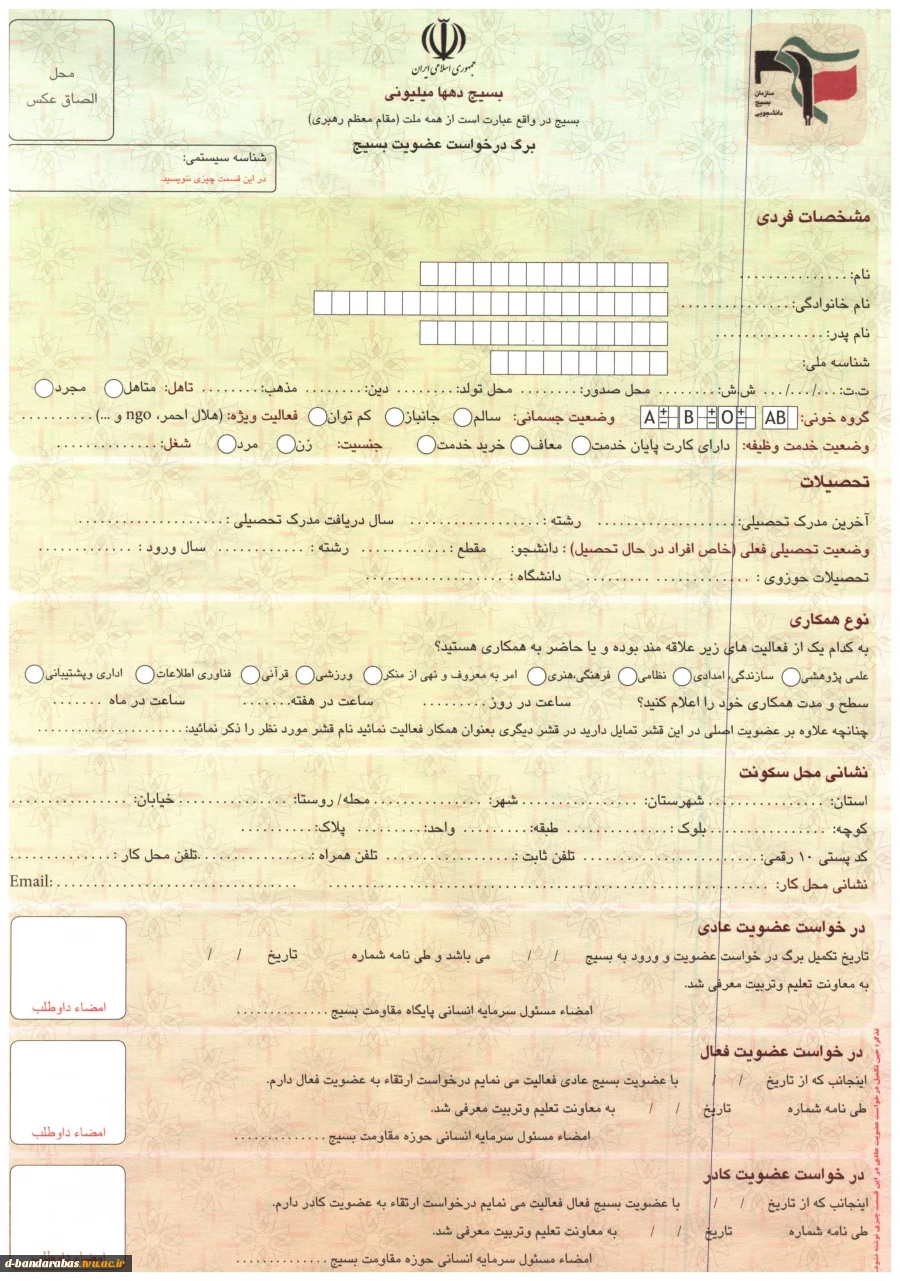 محل
الصاق عکس
جمهوری اسلامی ایران
بسیج دهها میلیونی
بسیج در واقع عبارت است از همه ملت (مقام معظم رهبری)
برگ درخواست عضویت بسیج
سازمان
بسیج
دانشجویی
شناسه سیستمی:
در این قسمت چیزی ننویسید.
مشخصات فردی
نام: ...............
نام خانوادگی: ...............
نام پدر: ...............
شناسه ملی:
ت.ت: .../.../... ش.ش: ........ محل صدور: ........ محل تولد: ........ دین: ........ مذهب: ........ تاهل: متاهل مجرد
گروه خونی: AB O + - B + - A + - وضعیت جسمانی: سالم جانباز کم توان فعالیت ویژه: (هلال احمر، ngo و ...) ..........
وضعیت خدمت وظیفه: دارای کارت پایان خدمت معاف خرید خدمت جنسیت: زن مرد شغل: ..............
تحصیلات
آخرین مدرک تحصیلی: .................. رشته : ................. سال دریافت مدرک تحصیلی : ...................
وضعیت تحصیلی فعلی (خاص افراد در حال تحصیل) : دانشجو: مقطع : ............ رشته : ............ سال ورود : .............
تحصیلات حوزوی : ............ ......... دانشگاه : ..................
نوع همکاری
به کدام یک از فعالیت های زیر علاقه مند بوده و یا حاضر به همکاری هستید؟
علمی پژوهشی سازندگی، امدادی نظامی فرهنگی،هنری امر به معروف و نهی از منکر ورزشی قرآنی فناوری اطلاعات اداری وپشتیبانی
سطح و مدت همکاری خود را اعلام کنید؟ ساعت در روز ......... ساعت در هفته....... ساعت در ماه .......
چنانچه علاوه بر عضویت اصلی در این قشر تمایل دارید در قشر دیگری بعنوان همکار فعالیت نمائید نام قشر مورد نظر را ذکر نمائید: ...................
نشانی محل سکونت
استان: ............... شهرستان: ............... شهر: ............... محله/ روستا: ............... خیابان: ...............
کوچه: ............... بلوک : ............. طبقه: ......... واحد: ......... پلاک: ..........
کد پستی ۱۰ رقمی: ....................... تلفن ثابت : ................. تلفن همراه : ............... تلفن محل کار : ..............
نشانی محل کار: ............................................................ Email: ................................
در خواست عضویت عادی
تاریخ تکمیل برگ در خواست عضویت و ورود به بسیج / / می باشد و طی نامه شماره تاریخ / /
به معاونت تعلیم وتربیت معرفی شد.
امضاء مسئول سرمایه انسانی پایگاه مقاومت بسیج ..............
امضاء داوطلب
در خواست عضویت فعال
اینجانب که از تاریخ / / با عضویت بسیج عادی فعالیت می نمایم درخواست ارتقاء به عضویت فعال دارم.
طی نامه شماره تاریخ / / به معاونت تعلیم وتربیت معرفی شد.
امضاء مسئول سرمایه انسانی حوزه مقاومت بسیج ..............
امضاء داوطلب
در خواست عضویت کادر
اینجانب که از تاریخ / / با عضویت بسیج فعال فعالیت می نمایم درخواست ارتقاء به عضویت کادر دارم.
طی نامه شماره تاریخ / / به معاونت تعلیم وتربیت معرفی شد.
امضاء مسئول سرمایه انسانی حوزه مقاومت بسیج ..............
تذکر: حین تکمیل درخواست عضویت عادی در این قسمت چیزی نوشته نشود.
d-bandarabas.tvu.ac.ir